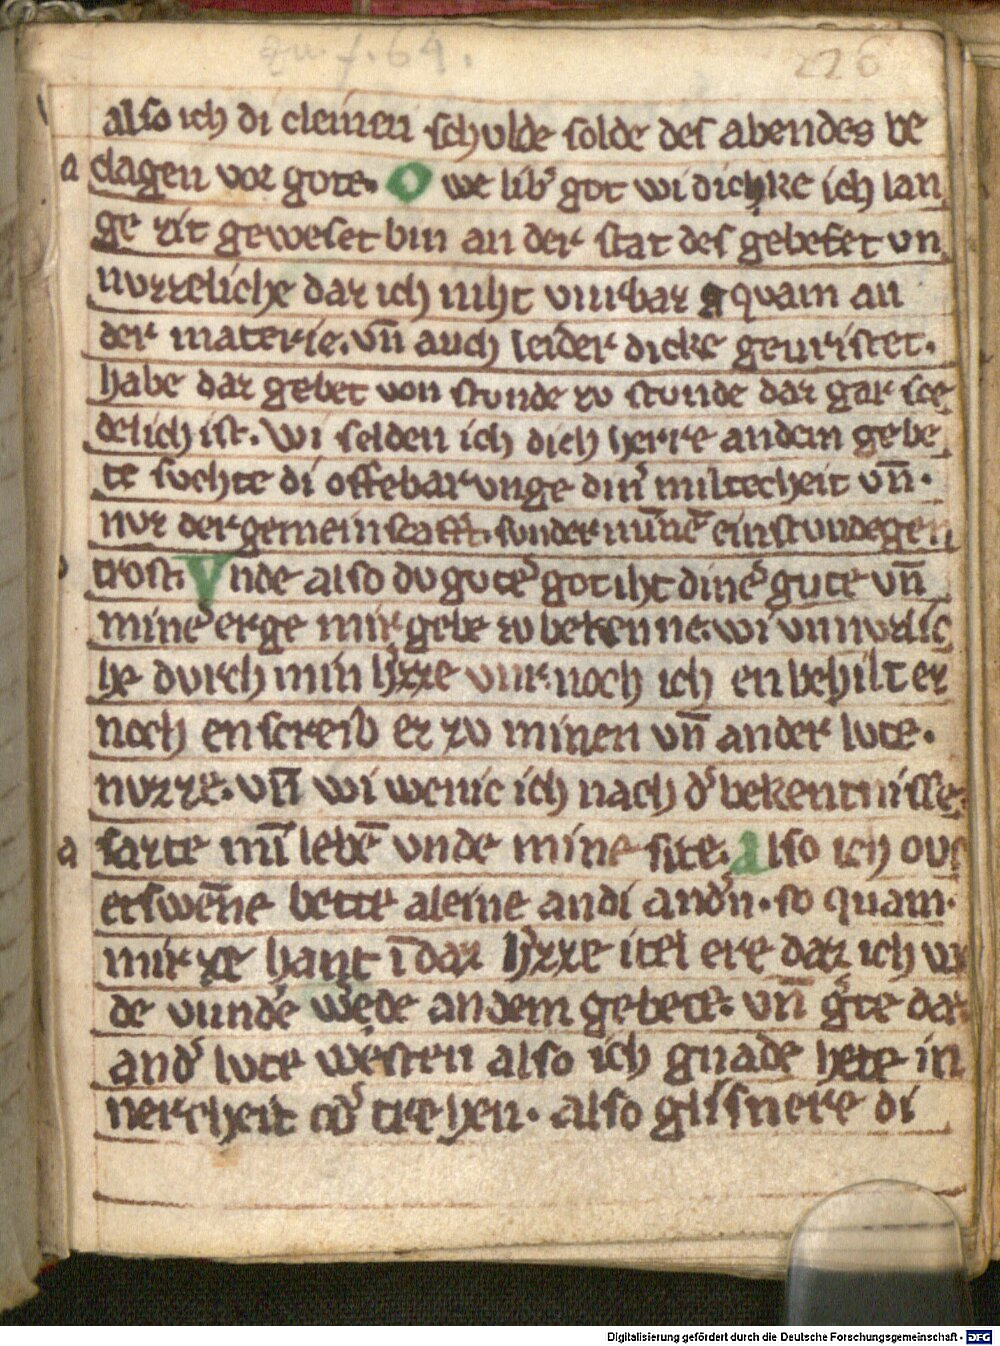 zu f. 64.
226
also ich di cleinen schulde solde des abendes be
a clagen vor gote. O we lib' got wi dichke ich lan
ge zit geweset bin an der stat des gebetet vn
nuzzeliche daz ich niht vrurbaz quam an
der materie. vn̄ auch leider dicke gevristet.
habe daz gebet von stunde zu stunde daz gar sce
delich ist. wi selden ich dich herre an dem gebe
te suchte di offebarunge din' miltecheit vn̄.
nuz der gemeinscaft. sunder einstundegen
trost. Vnde also du gute' got iht dine' gute vn̄
mine' erge mir gebe zu bekenne. wi vnnuzlic
he durch min h'zze vur. noch ich en behilt ez
noch en screib ez zu minen vn̄ ander lute.
nuzze. vn̄ wi wenic ich nach d' bekentnisse
a sazte mī lebē vnde mine site. Also ich ouc
etswēne bette aleine an di and'n. so quam.
mir ze hant ī daz h'zze itel ere daz ich
de vunde an dem gebete. vn̄ g'te daz
and' lute westen also ich gnade hete in
nercheit od' trehen. also glisnere di
Digitalisierung gefördert durch die Deutsche Forschungsgemeinschaft - DFG